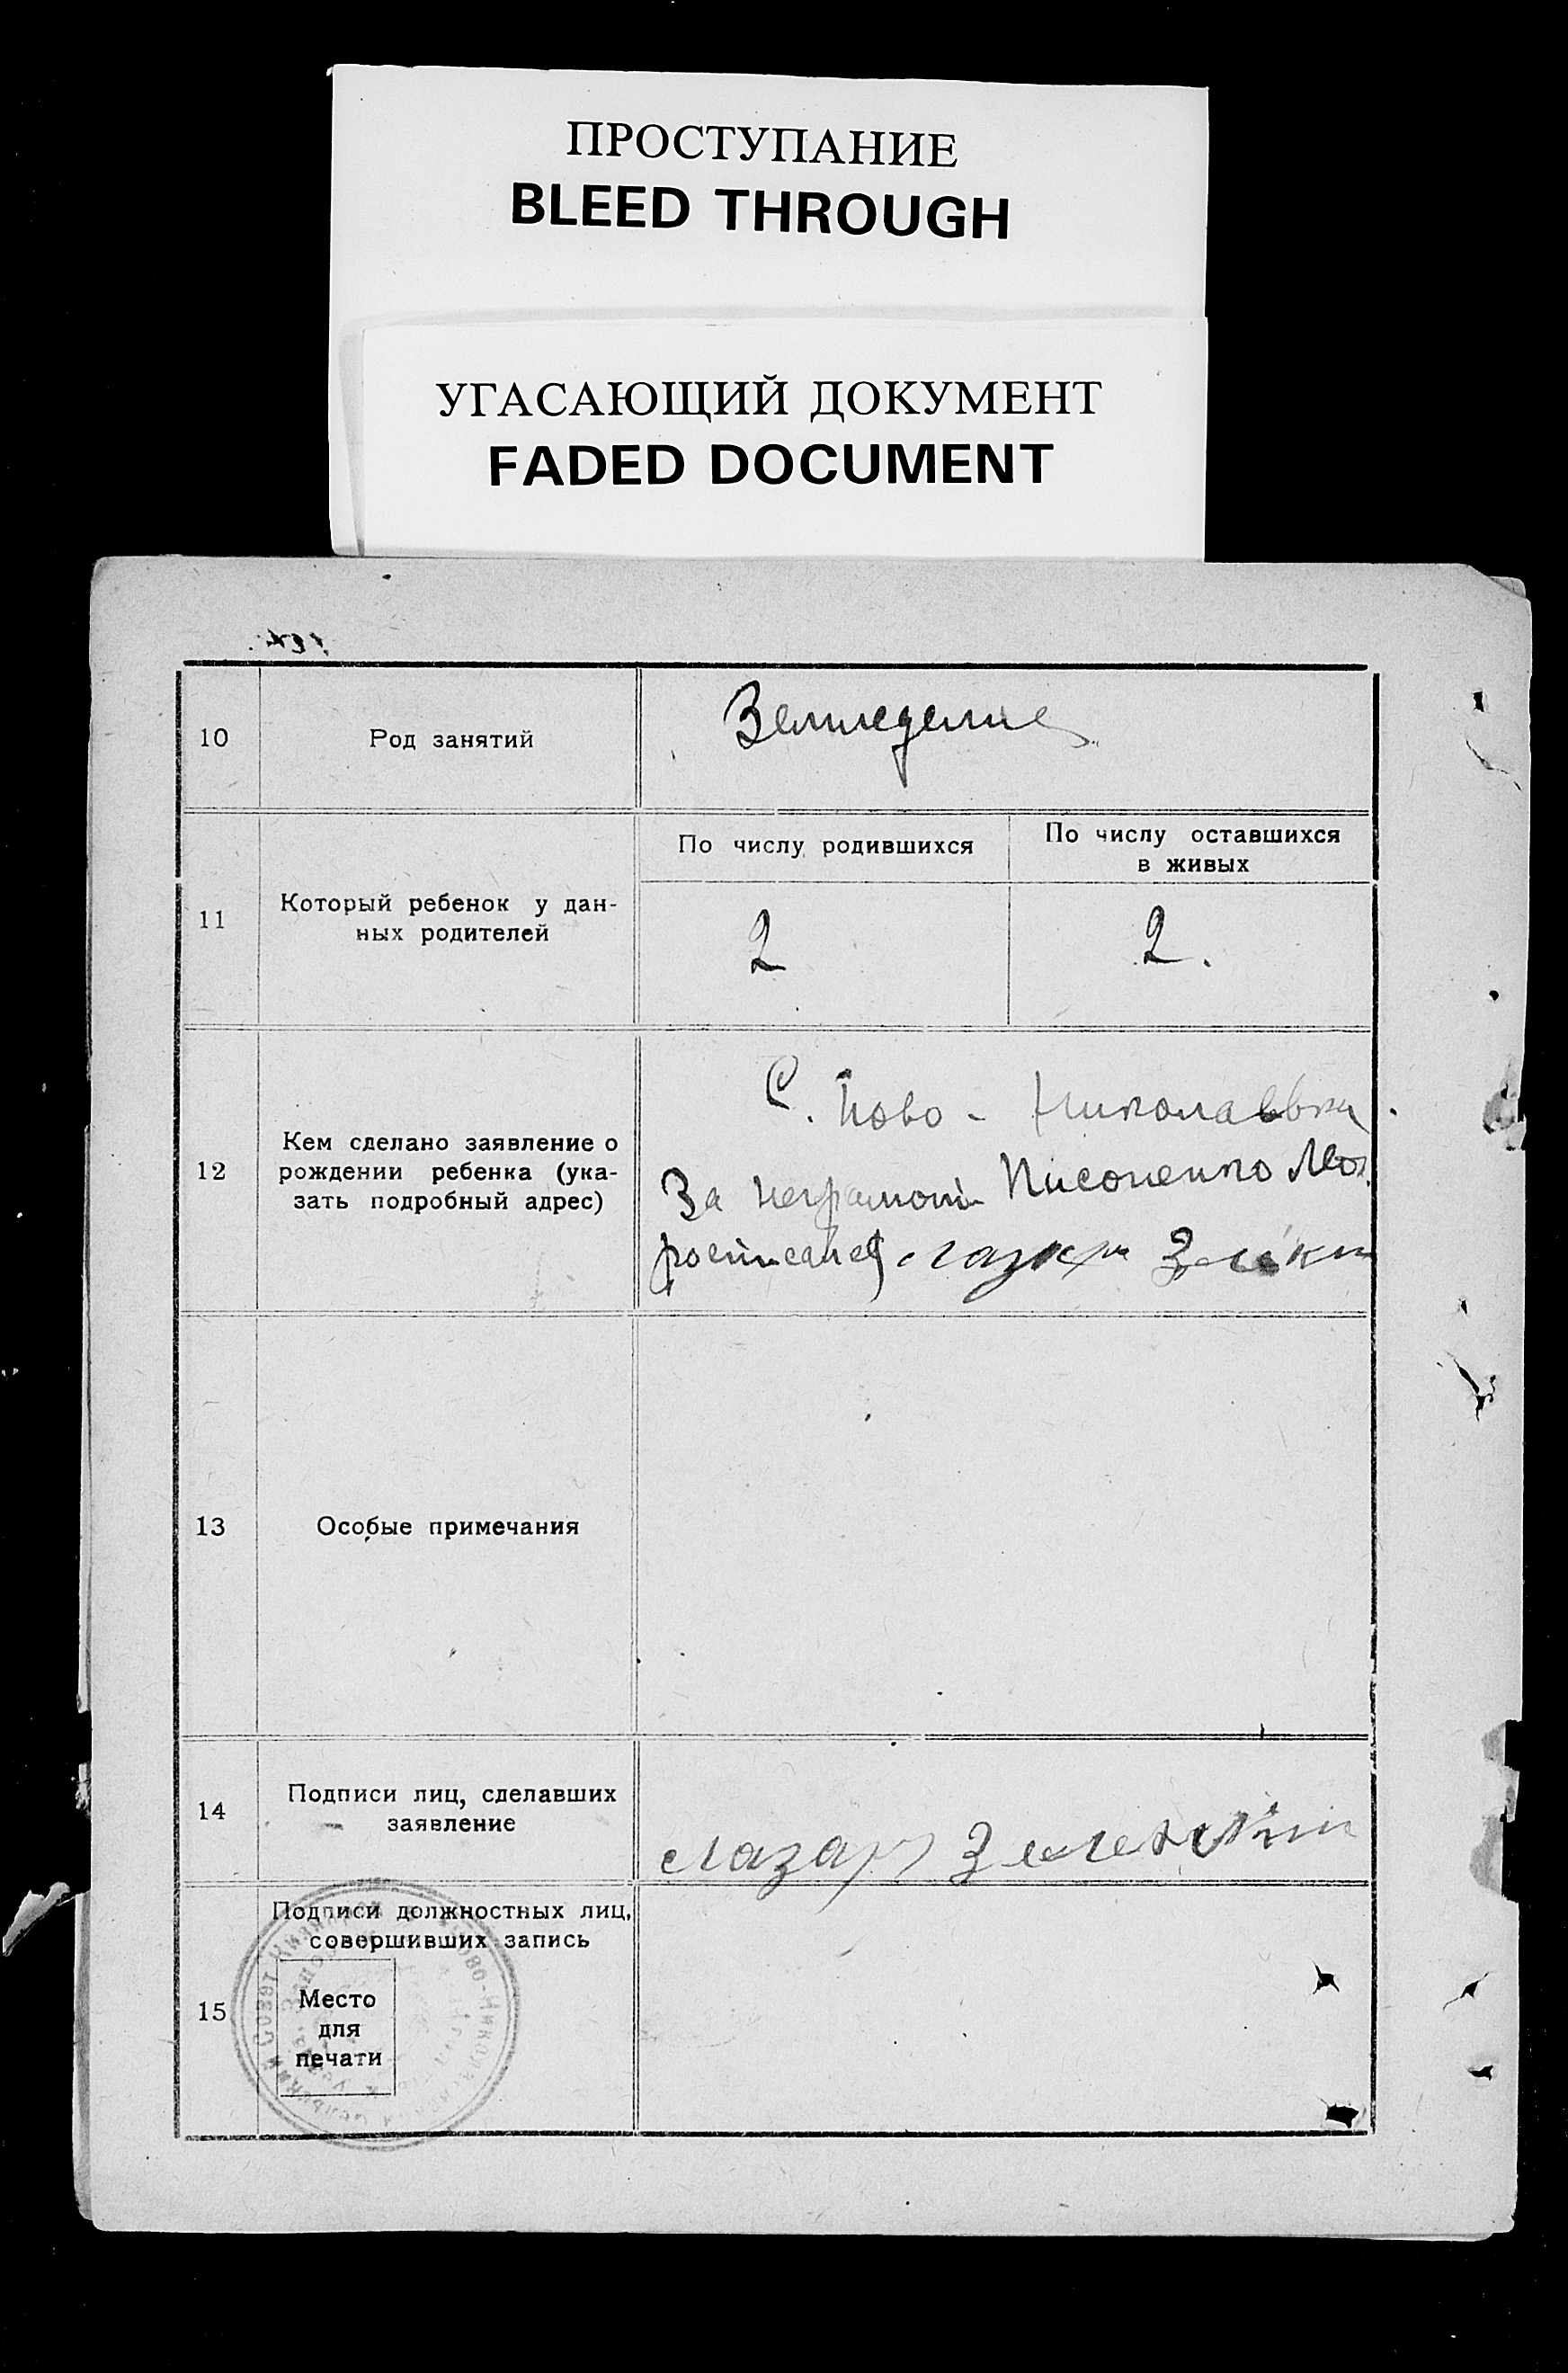 ПРОСТУПАНИЕ
BLEED THROUGH
УГАСАЮЩИЙ ДОКУМЕНТ
FADED DOCUMENT
10
Род занятий
Земледелие
11
Который ребенок у дан-
ных родителей
По числу родившихся
По числу оставшихся
в живых
2
2.
12
Кем сделано заявление о
рождении ребенка (ука-
зать подробный адрес)
С. Ново-
За
13
Особые примечания
14
Подписи лиц, сделавших
заявление
Лазарь
15
Подписи должностных лиц,
совершивших запись
Место
для
печати